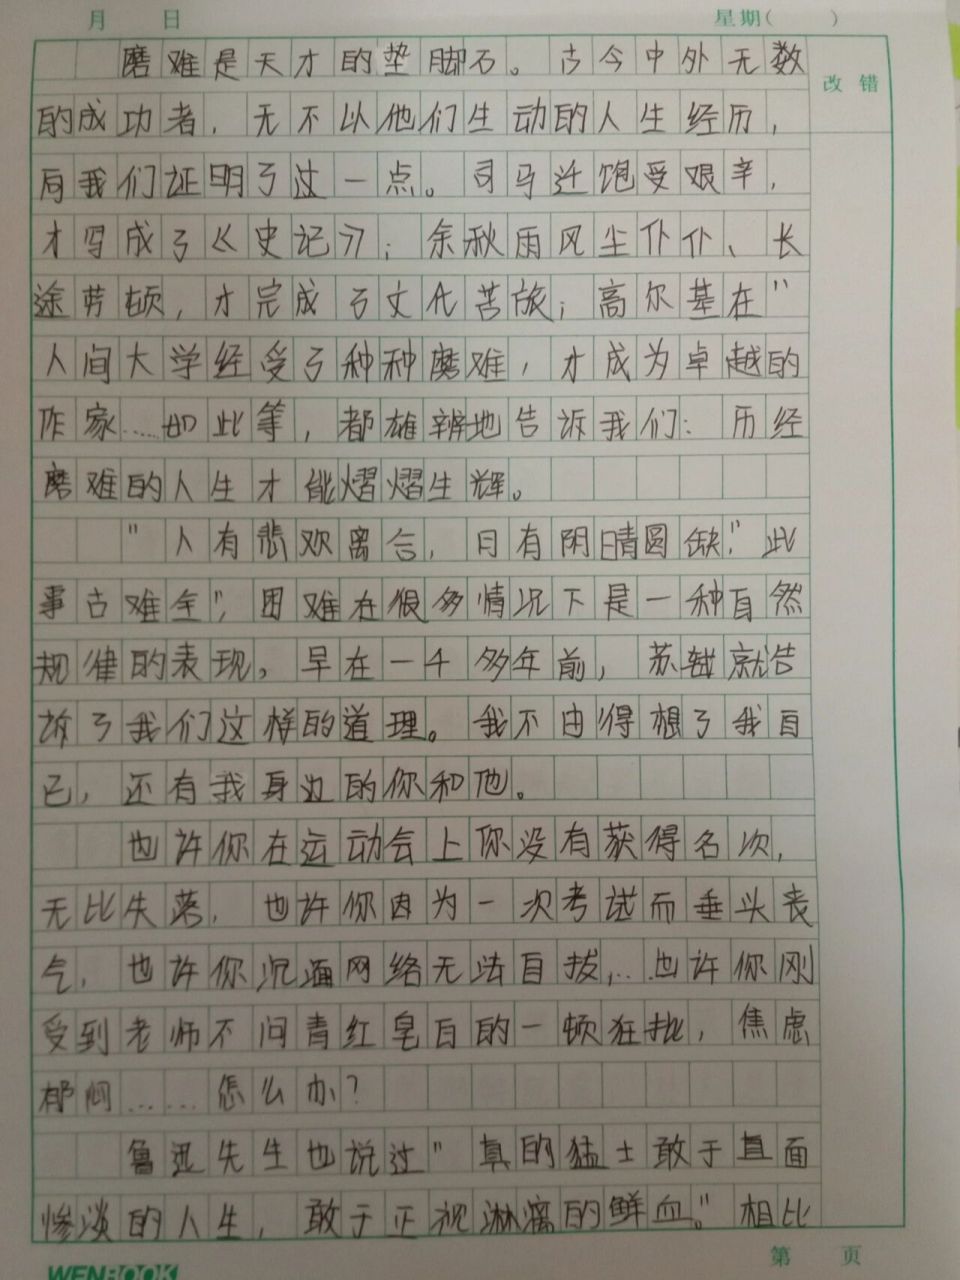 月 日 星期( )
改 错
磨难是天才的垫脚石。古今中外无数
的成功者，无不以他们生动的人生经历，
向我们证明了这一点。司马迁饱受艰辛，
才写成了《史记》；余秋雨风尘仆仆、长
途劳顿，才完成了文化苦旅；高尔基在"
人间大学经受了种种磨难，才成为卓越的
作家……如此等，都雄辨地告诉我们：历经
磨难的人生才能熠熠生辉。
"人有悲欢离合，月有阴晴圆缺."此
事古难全"，困难在很多情况下是一种自然
规律的表现。早在一千多年前，苏轼就告
诉了我们这样的道理。我不由得想了我自
己，还有我身边的你和他。
也许你在运动会上你没有获得名次，
无比失落，也许你因为一次考试而垂头丧
气，也许你沉湎网络无法自拔，…也许你刚
受到老师不问青红皂白的一顿狂批，焦虑
郁闷……怎么办？
鲁迅先生也说过"真的猛士敢于直面
惨淡的人生，敢于正视淋漓的鲜血。"相比
第 页
WENBOOK